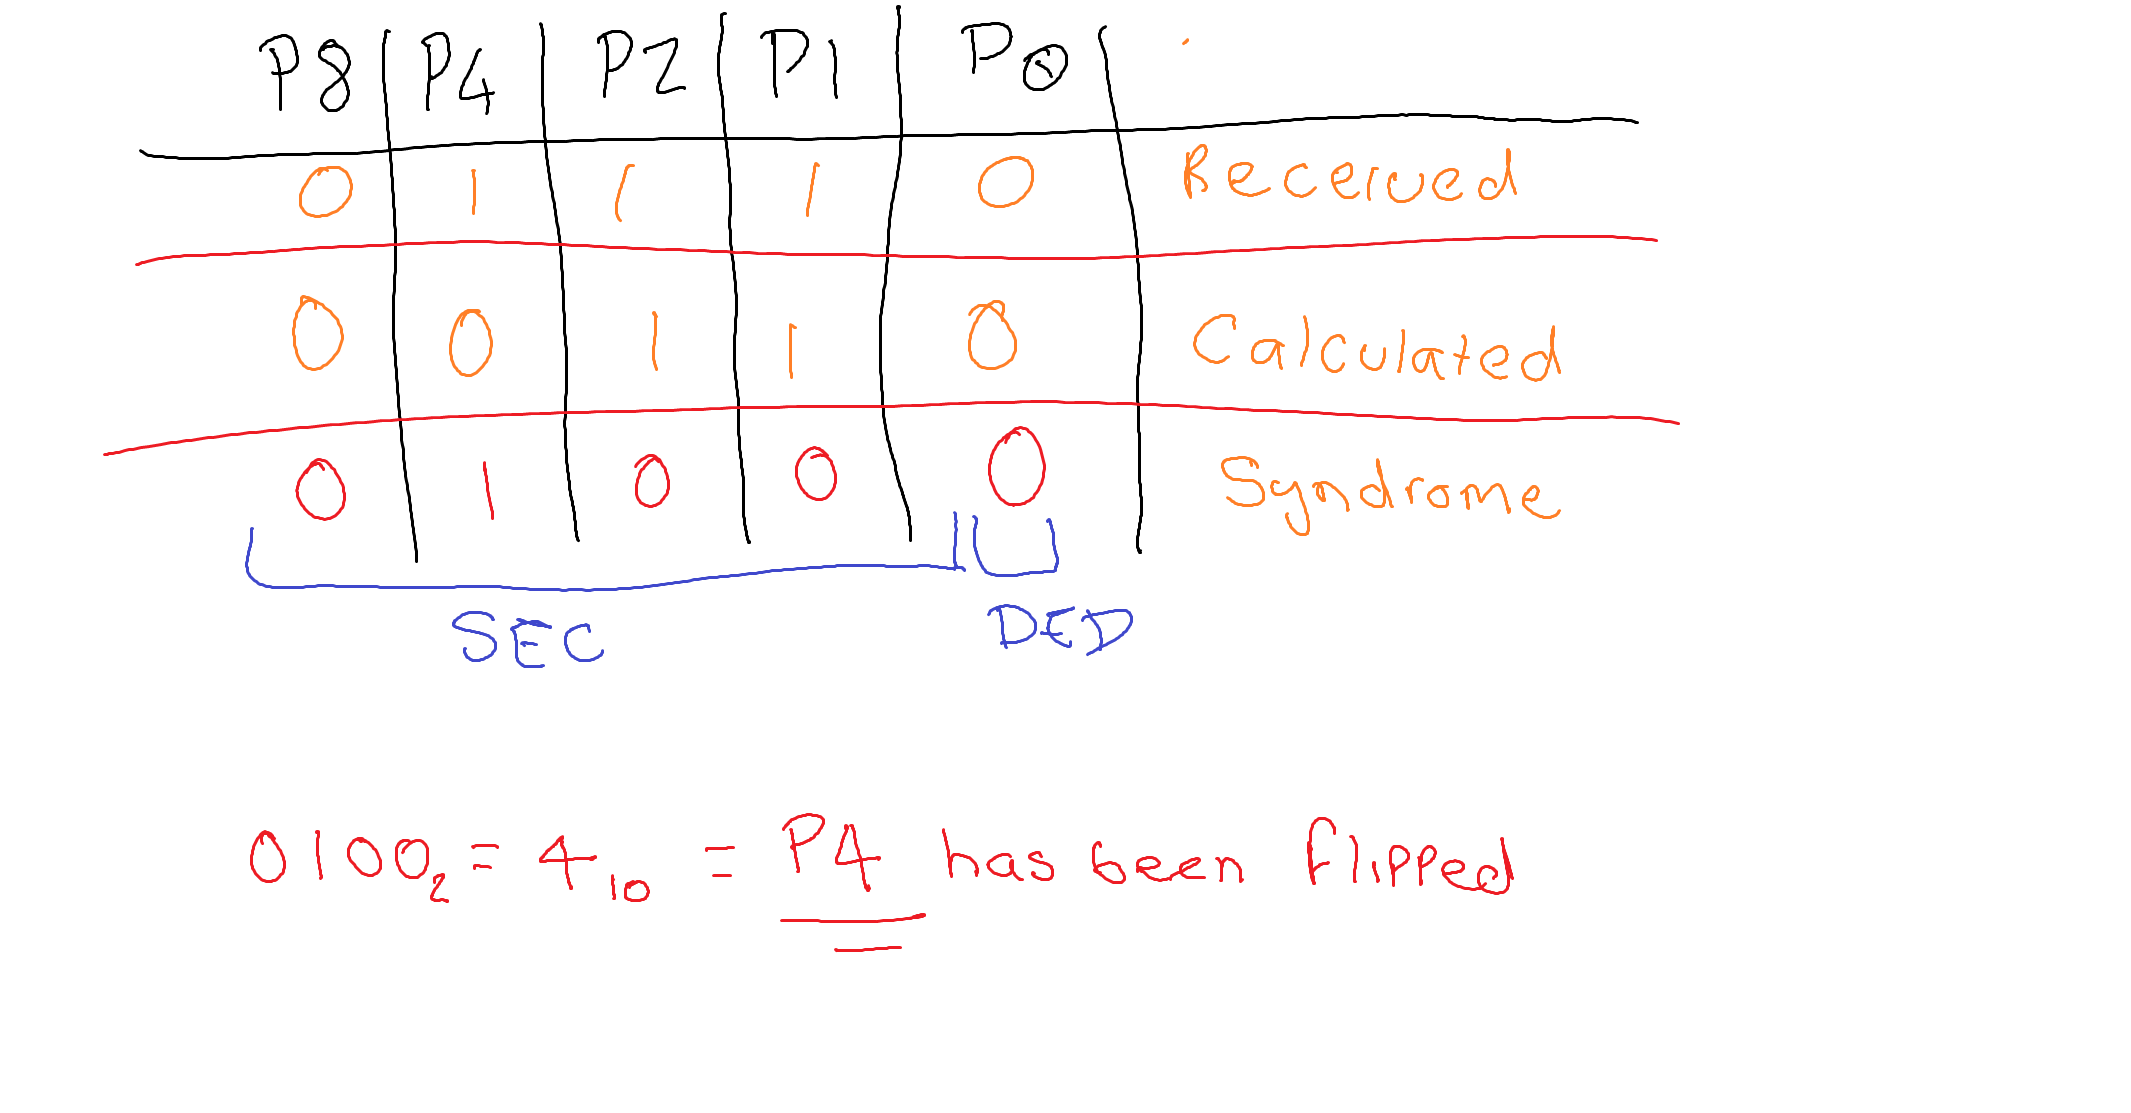 P8 P4 P2 P1 P0
0 1 1 1 0 Received
0 0 1 1 0 Calculated
0 1 0 0 0 Syndrome
SEC DED
0100₂ = 4₁₀ = P4 has been flipped